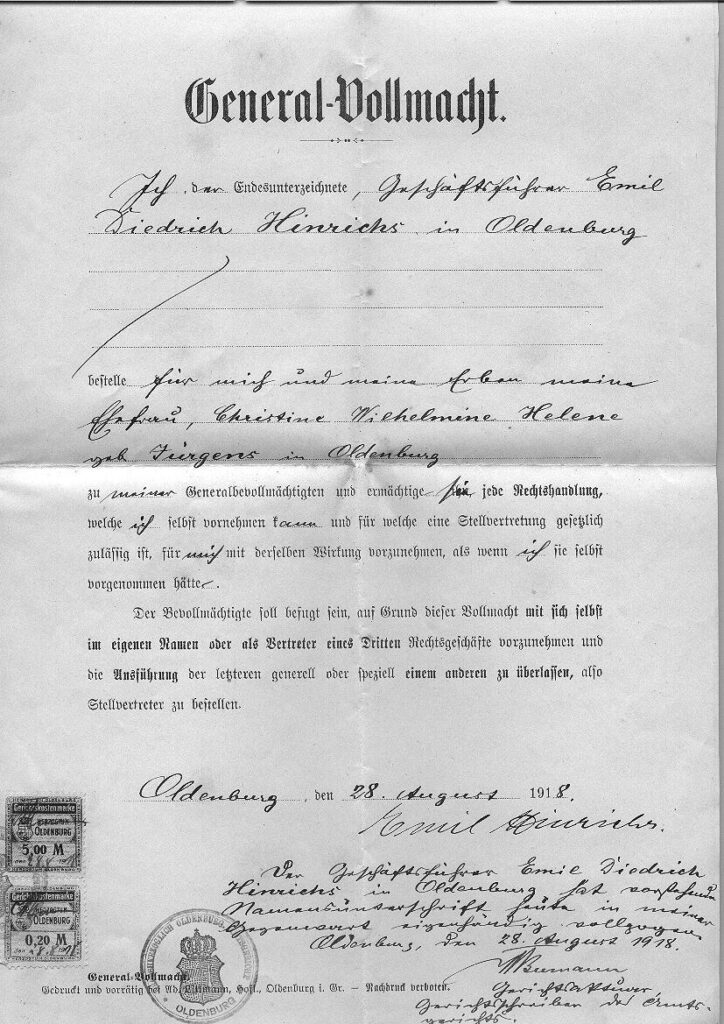 General-Vollmacht.
Ich der Endesunterzeichnete, Geschäftsführer Emil
Diedrich Hinrichs in Oldenburg
bestelle für mich und meine Erben meine
Ehefrau, Christine Wilhelmine Helene
geb Jürgens in Oldenburg
zu meiner Generalbevollmächtigten und ermächtige sie jede Rechtshandlung,
welche ich selbst vornehmen kann und für welche eine Stellvertretung gesetzlich
zulässig ist, für mich mit derselben Wirkung vorzunehmen, als wenn ich sie selbst
vorgenommen hätte.
Der Bevollmächtigte soll befugt sein, auf Grund dieser Vollmacht mit sich selbst
im eigenen Namen oder als Vertreter eines Dritten Rechtsgeschäfte vorzunehmen und
die Ausführung der letzteren generell oder speziell einem anderen zu überlassen, also
Stellvertreter zu bestellen.
Oldenburg, den 28. August 1918.
Emil Hinrichs.
Gerichtskostenmarke
OLDENBURG
5,00 M
Gerichtskostenmarke
OLDENBURG
0,20 M
Der Geschäftsführer Emil Diedrich
Hinrichs in Oldenburg hat vorstehende
Namensunterschrift heute in meiner
Gegenwart eigenhändig vollzogen.
Oldenburg, den 28. August 1918.
Gerichtsaktuar,
Gerichtsschreiber des Amts-
gerichts.
OLDENBURG
General-Vollmacht.
Gedruckt und vorrätig bei Ad. Littmann, Hofl., Oldenburg i. Gr. — Nachdruck verboten.